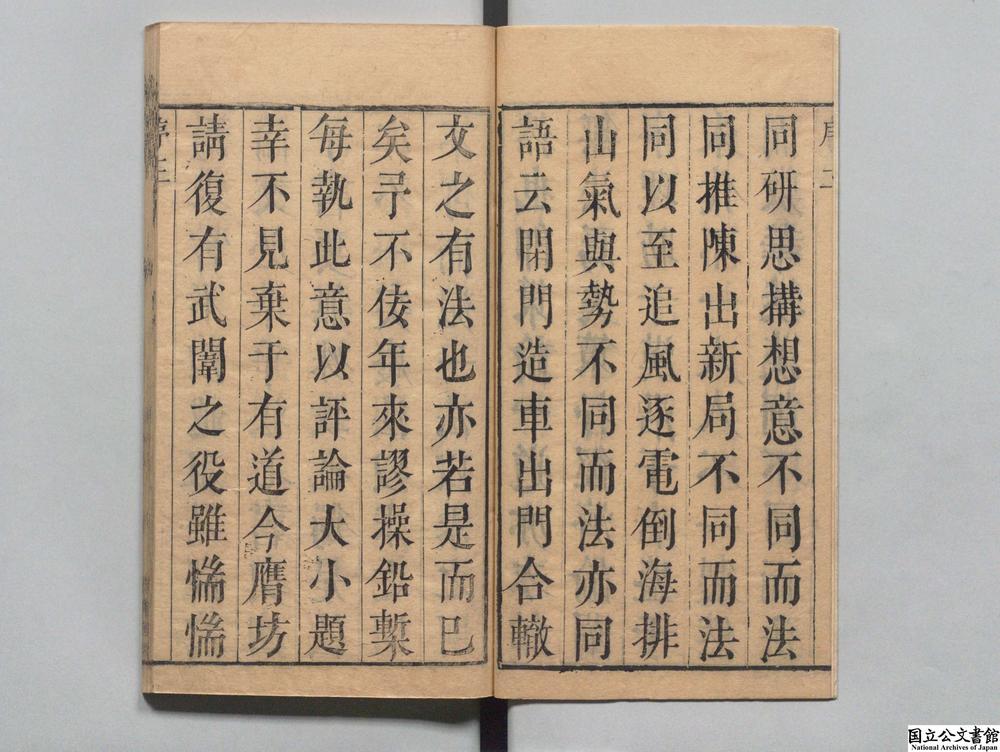 同研思搆想意不同而法
同推陳出新局不同而法
同以至追風逐電倒海排
山氣與勢不同而法亦同
語云閉門造車出門合轍
文之有法也亦若是而已
矣予不佞年來謬操鉛槧
每執此意以評論大小題
幸不見棄于有道今膺坊
請復有武闈之役雖惴惴
国立公文書館
National Archives of Japan